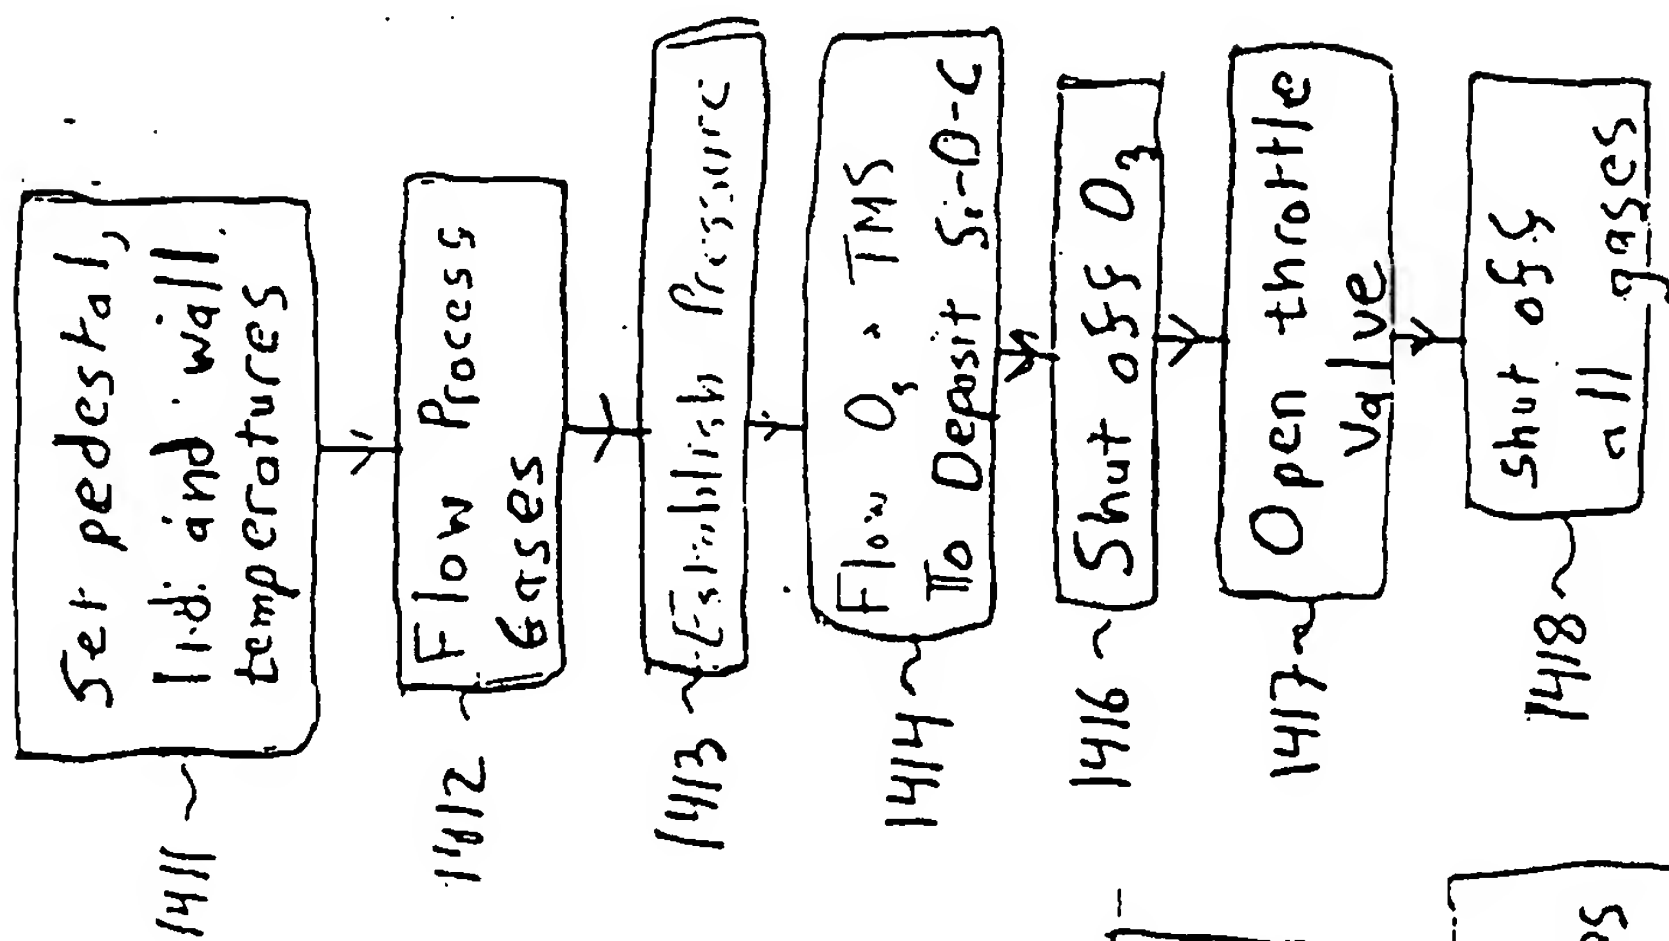 Set pedestal,
lid and wall
temperatures
1411
Flow Process
Gases
1412
Establish Pressure
1413
Flow O3 + TMS
To Deposit Si-O-C
1414
Shut off O3
1416
Open throttle
Valve
1417
Shut off
all gases
1418